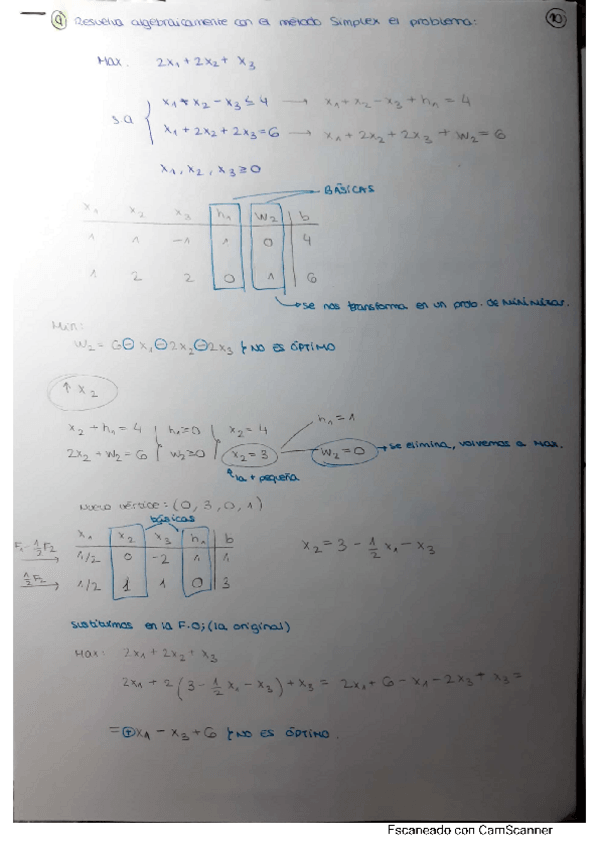 9 Resuelva algebraicamente con el método Simplex el problema: 10
Max. 2x₁ + 2x₂ + x₃
s.a { x₁ + x₂ - x₃ ≤ 4 → x₁ + x₂ - x₃ + h₁ = 4
x₁ + 2x₂ + 2x₃ = 6 → x₁ + 2x₂ + 2x₃ + w₂ = 6
x₁, x₂, x₃ ≥ 0
BÁSICAS
x₁ x₂ x₃ h₁ w₂ b
1 1 -1 1 0 4
1 2 2 0 1 6
→ se nos transforma en un prob. de minimizar.
Min:
w₂ = 6 - x₁ - 2x₂ - 2x₃ } NO ES ÓPTIMO
↑ x₂
x₂ + h₁ = 4 } h₁ ≥ 0 } x₂ = 4 h₁ = 1
2x₂ + w₂ = 6 } w₂ ≥ 0 } x₂ = 3 w₂ = 0 → se elimina, volvemos a max.
↑ la + pequeña
Nuevo vértice: (0, 3, 0, 1)
básicas
x₁ x₂ x₃ h₁ b
F₁ - ½F₂ → 1/2 0 -2 1 1 x₂ = 3 - ½ x₁ - x₃
½F₂ → 1/2 1 1 0 3
sustituimos en la F.O; (la original)
Max: 2x₁ + 2x₂ + x₃
2x₁ + 2 (3 - ½ x₁ - x₃) + x₃ = 2x₁ + 6 - x₁ - 2x₃ + x₃ =
= + x₁ - x₃ + 6 } NO ES ÓPTIMO.
Escaneado con CamScanner